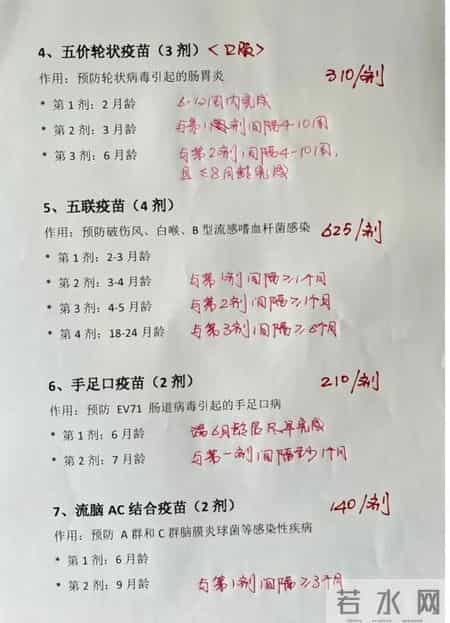 4、五价轮状疫苗（3 剂）<口服>
作用：预防轮状病毒引起的肠胃炎 310/剂
* 第 1 剂：2 月龄 6-12周内完成
* 第 2 剂：3 月龄 与第1剂间隔4-10周
* 第 3 剂：6 月龄 与第2剂间隔4-10周,
且≤8月龄完成
5、五联疫苗（4 剂）
作用：预防破伤风、白喉、B 型流感嗜血杆菌感染 625/剂
* 第 1 剂：2-3 月龄
* 第 2 剂：3-4 月龄 与第1剂间隔≥1个月
* 第 3 剂：4-5 月龄 与第2剂间隔≥1个月
* 第 4 剂：18-24 月龄 与第3剂间隔≥6个月
6、手足口疫苗（2 剂）
作用：预防 EV71 肠道病毒引起的手足口病 210/剂
* 第 1 剂：6 月龄 满6月龄后尽早完成
* 第 2 剂：7 月龄 与第一剂间隔至少1个月
7、流脑 AC 结合疫苗（2 剂） 140/剂
作用：预防 A 群和 C 群脑膜炎球菌等感染性疾病
* 第 1 剂：6 月龄
* 第 2 剂：9 月龄 与第1剂间隔≥3个月
若水网